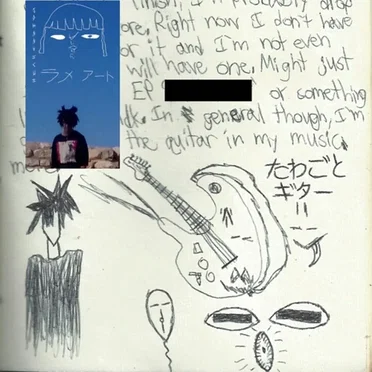 finish, I'll probably drop
ore. Right now I don't have
or it and I'm not even
will have one. Might just
EP or something
idk. In general though, I'm
the guitar in my music
ラメ アート
たわごと
ギター